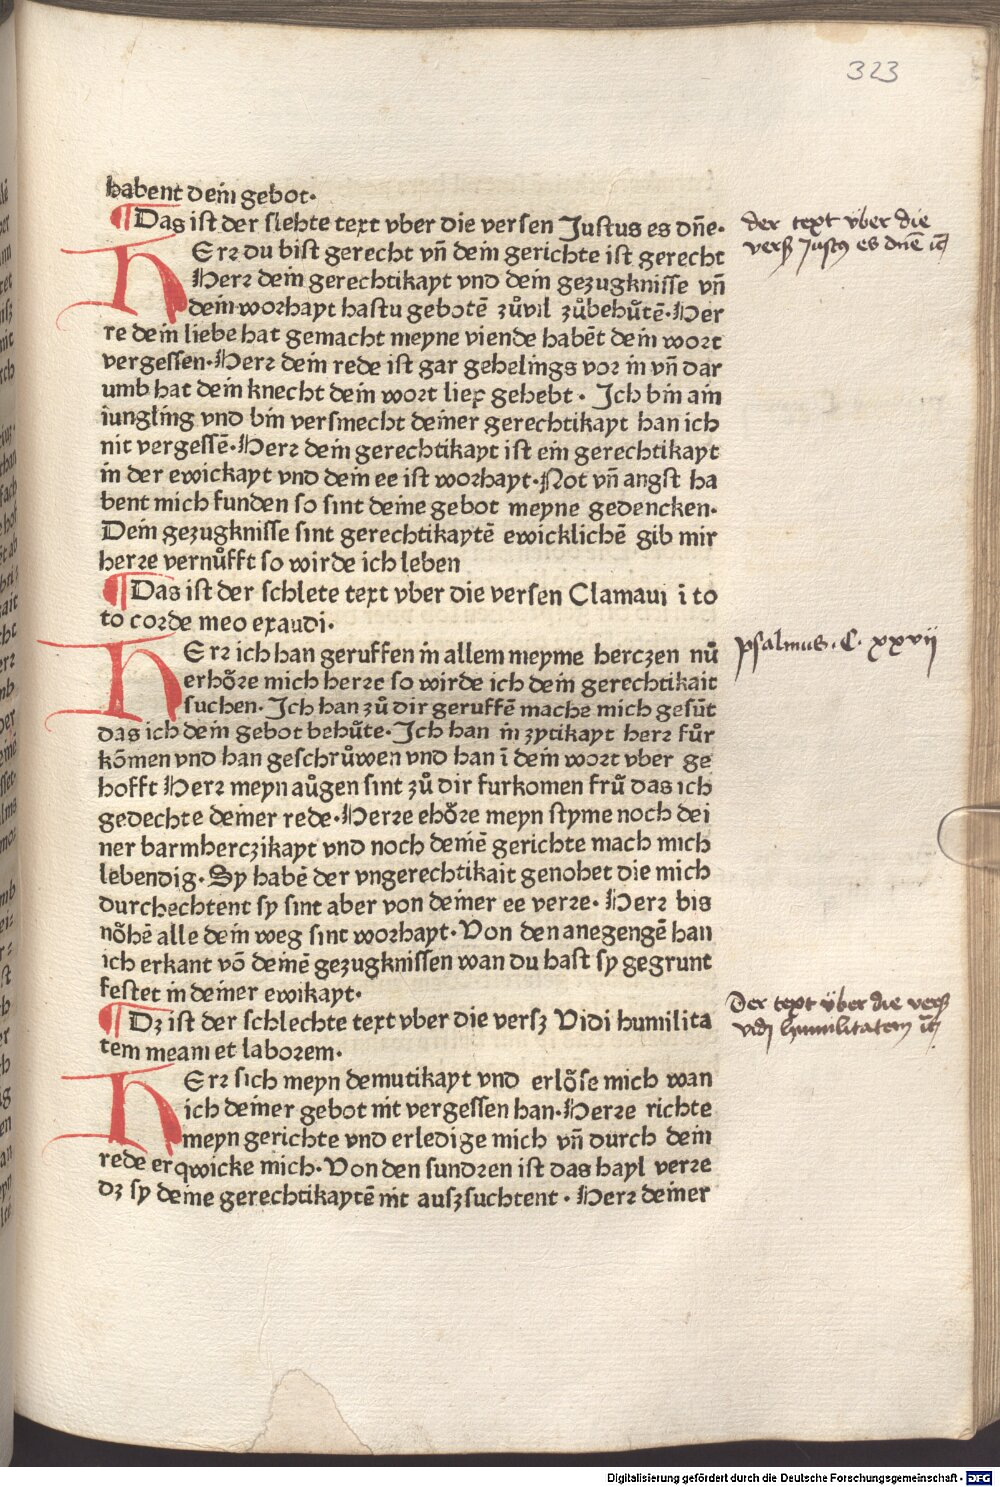 323
habent dein gebot·
¶ Das ist der slehte text vber die versen Justus es dn̄e·
HErꝛ du bist gerecht vn̄ dein gerichte ist gerecht
Herꝛ dein gerechtikayt vnd dein gezugknisse vn̄
dein woꝛhayt hastu gebotē zůvil zůbehůtē·Her
re dein liebe hat gemacht meyne viende habēt dein woꝛt
vergessen·Herꝛ dein rede ist gar gehelings voꝛ in vn̄ dar
umb hat dein knecht dein woꝛt liep gehebt· Ich bin ain
iungling vnd bin versmecht deiner gerechtikayt han ich
nit vergessē·Herꝛ dein gerechtikayt ist ein gerechtikayt
in der ewickayt vnd dein ee ist woꝛhayt·Not vn̄ angst ha
bent mich funden so sint deine gebot meyne gedencken·
Dein gezugknisse sint gerechtikaytē ewicklichē gib mir
herꝛe vernůfft so wirde ich leben
¶ Das ist der schlete text vber die versen Clamaui ī to
to coꝛde meo exaudi·
HErꝛ ich han geruffen in allem meyme herczen nů
erhoͤꝛe mich herꝛe so wirde ich dein gerechtikait
suchen· Ich han zů dir geruffē mache mich gesūt
das ich dein gebot behůte·Ich han in zytikayt herꝛ fůr
kōmen vnd han geschrůwen vnd han ī dein woꝛt vber ge
hofft Herꝛ meyn aůgen sint zů dir furkomen frů das ich
gedechte deiner rede·Herꝛe ehoͤꝛe meyn styme noch dei
ner barmherczikayt vnd noch deinē gerichte mach mich
lebendig·Sy habē der vngerechtikait genohet die mich
durchechtent sy sint aber von deiner ee verꝛe· Herꝛ bis
noͤhē alle dein weg sint woꝛhayt·Von den anegengē han
ich erkant vō deinē gezugknissen wan du hast sy gegrunt
festet in deiner ewikayt·
¶ Dꝫ ist der schlechte text vber die versꝫ Vidi humilita
tem meam et laboꝛem·
HErꝛ sich meyn demutikayt vnd erloͤse mich wan
ich deiner gebot nit vergessen han·Herꝛe richte
meyn gerichte vnd erledige mich vn̄ durch dein
rede erqwicke mich·Von den sundꝛen ist das hayl verꝛe
dꝫ sy deine gerechtikaytē nit ausꝫsuchtent· Herꝛ deiner
der text über die
versꝫ Justꝰ es dn̄e
psalmus. C. xxvij
Der text über die versꝫ
vidj humilitatem
Digitalisierung gefördert durch die Deutsche Forschungsgemeinschaft - DFG